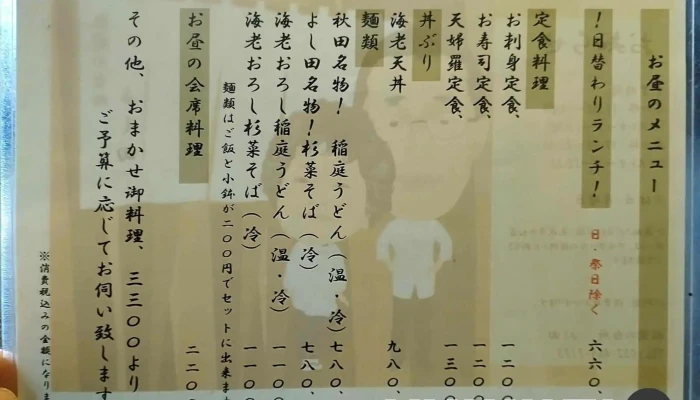 お昼のメニュー
！日替わりランチ！ 日・祭日除く 六六〇、
定食料理
お刺身定食、 一二〇〇
お寿司定食、 一二〇〇
天婦羅定食、 一三〇〇
丼ぶり
海老天丼 九八〇、
麺類
秋田名物！ 稲庭うどん（温・冷） 七八〇、
よし田名物！杉菜そば（冷） 七八〇、
海老おろし稲庭うどん（温・冷） 一一〇〇
海老おろし杉菜そば（冷） 一一〇〇
麺類はご飯と小鉢が二〇〇円でセットに出来ます
お昼の会席料理 二二〇
その他、 おまかせ御料理、 三三〇〇より
ご予算に応じてお伺い致します
※消費税込みの金額になりま